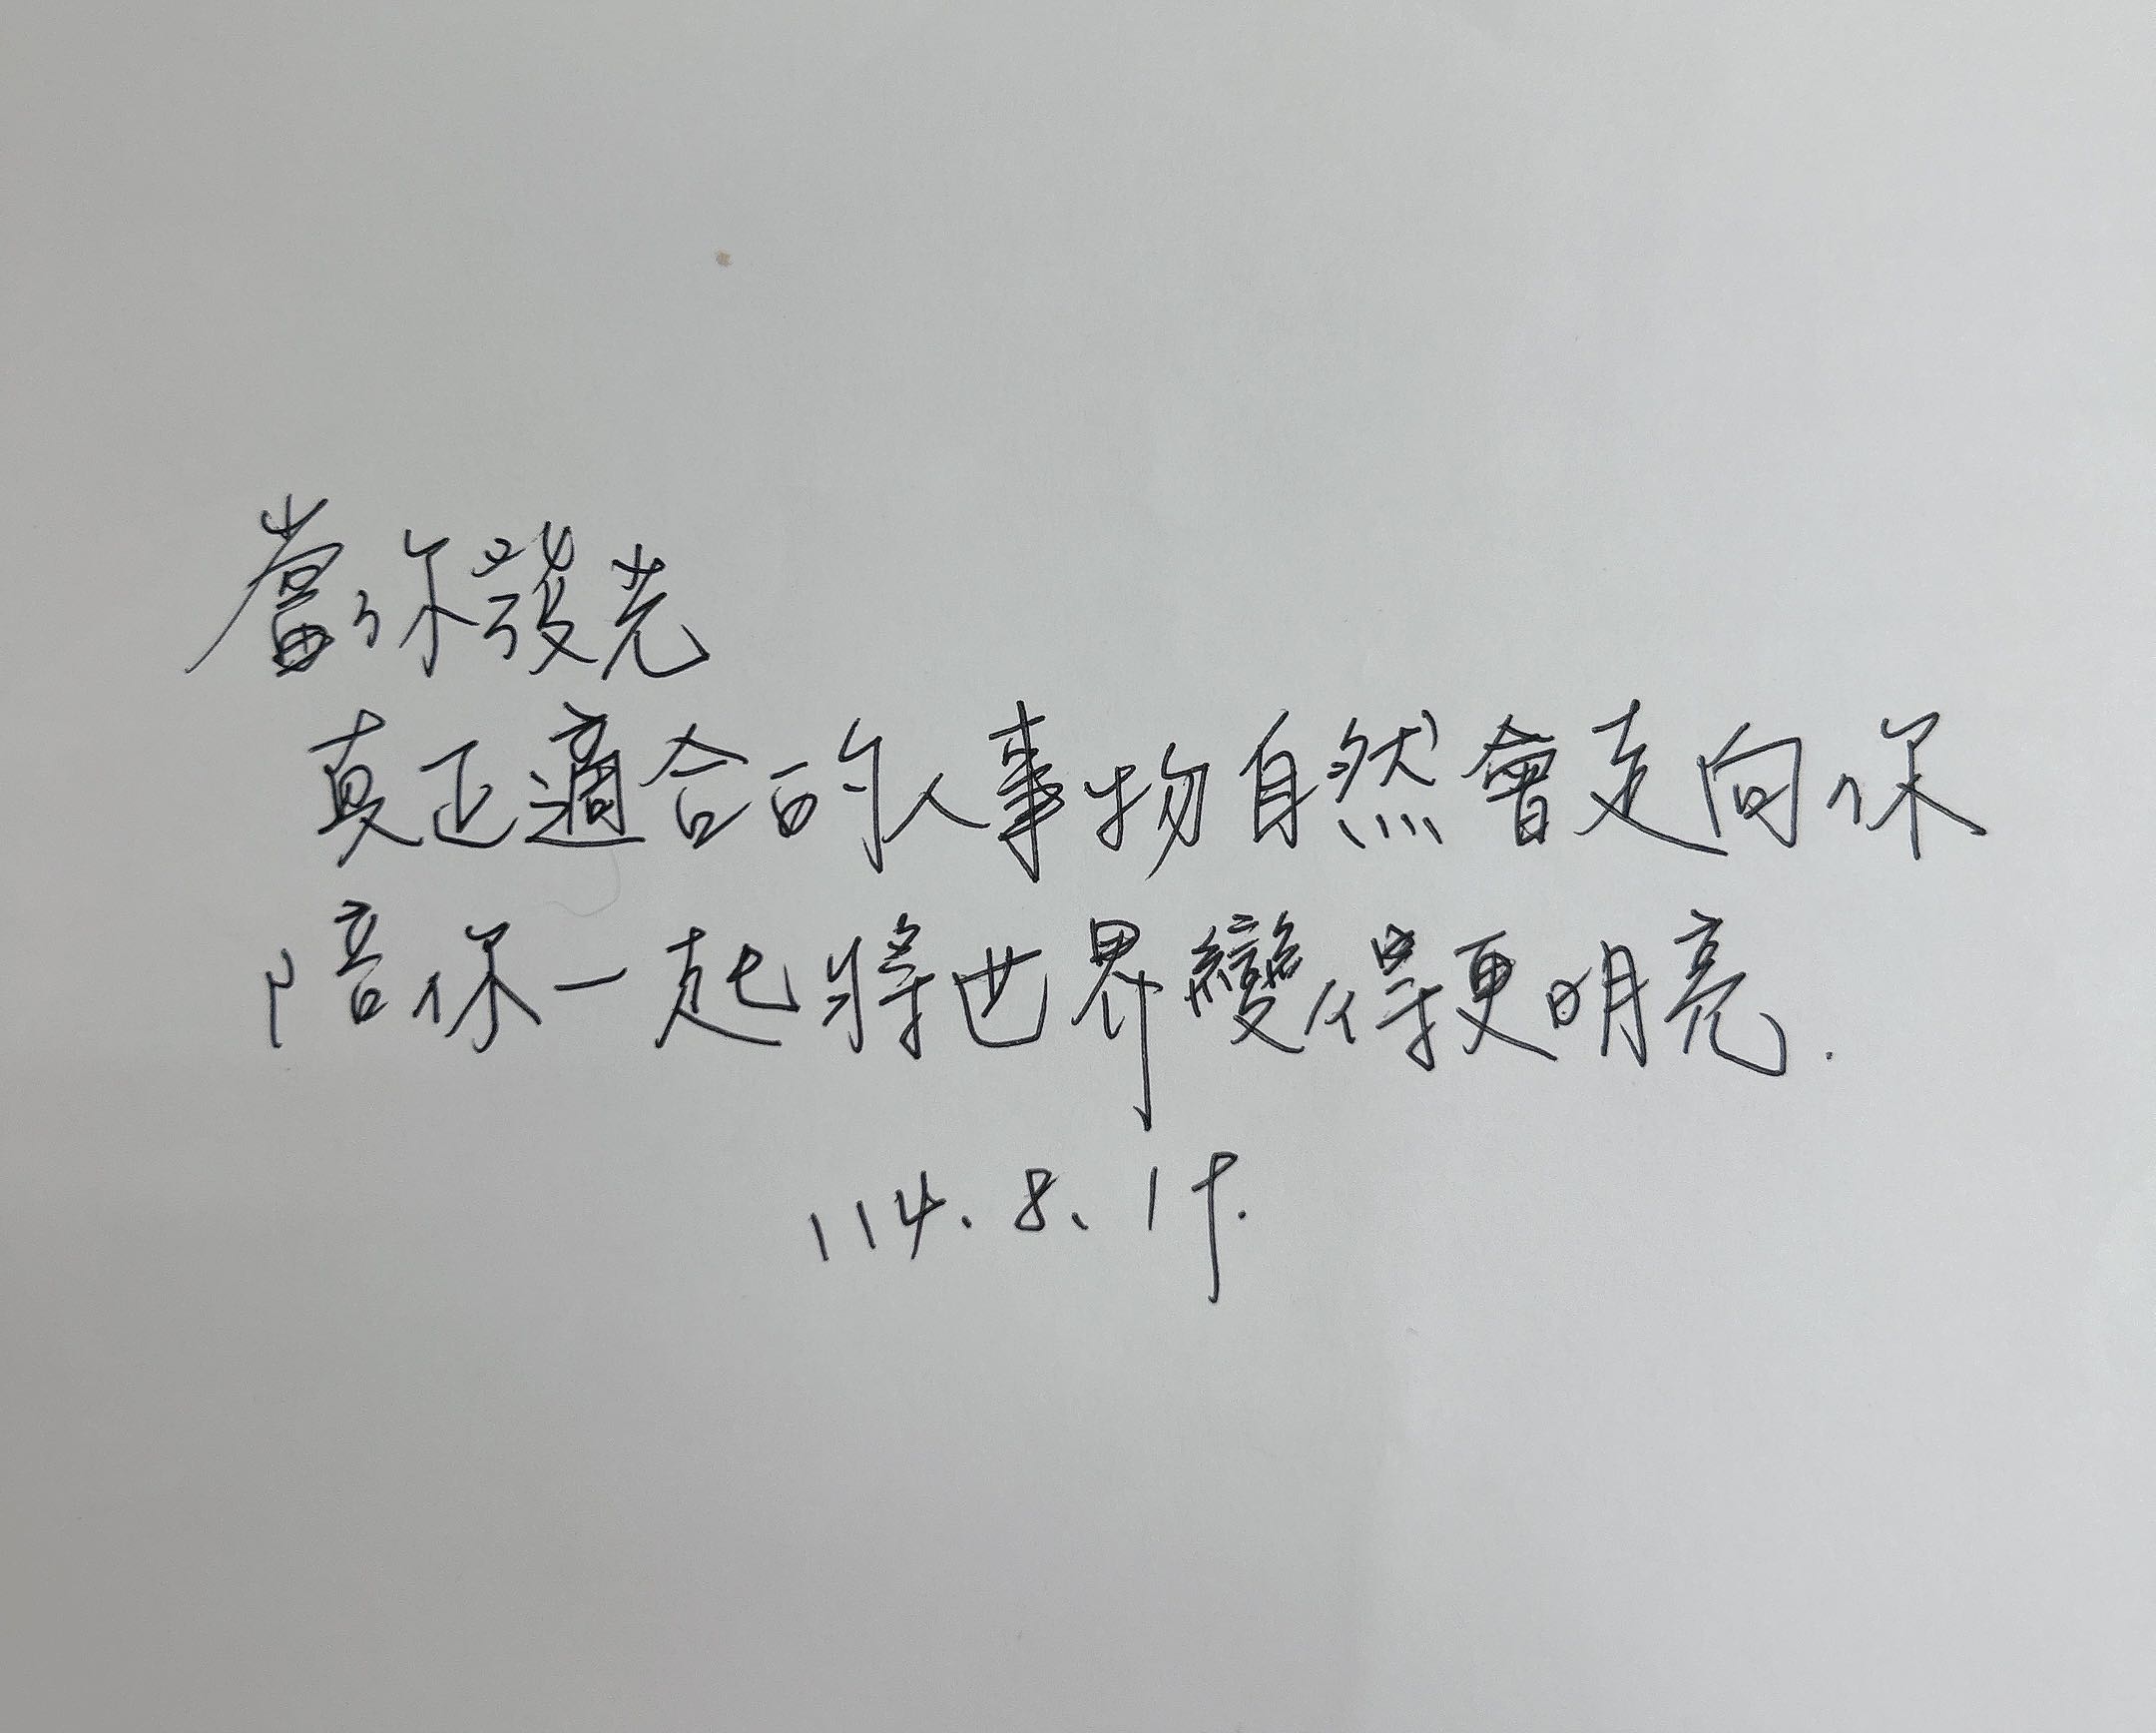 當你發光
真正適合的人事物自然會走向你
陪你一起將世界變得更明亮.
114.8、19.